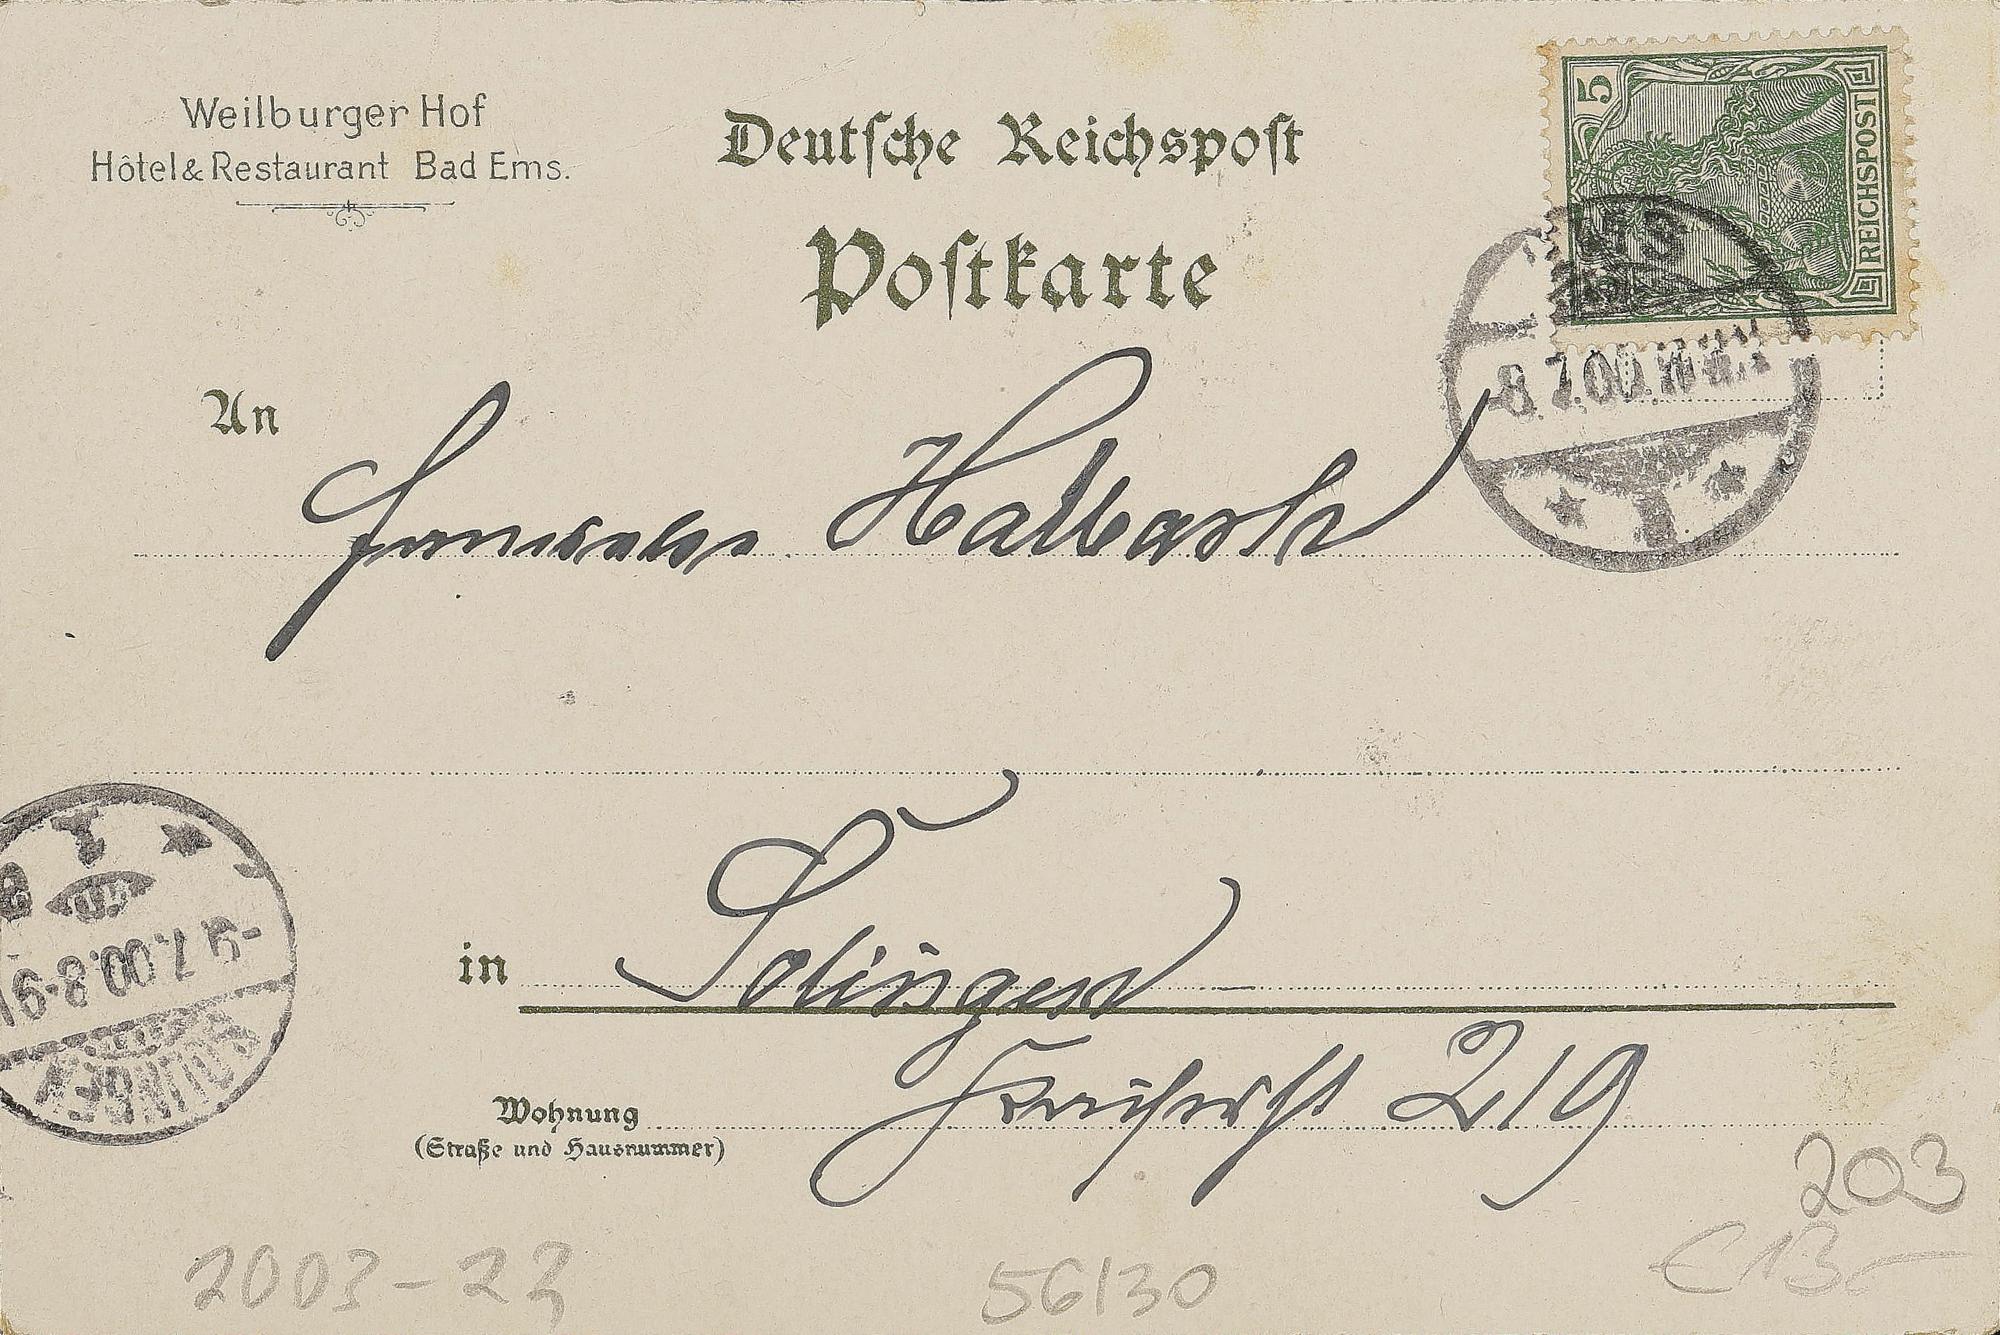 Weilburger Hof
Hôtel & Restaurant Bad Ems.
Deutsche Reichspost
Postkarte
5
REICHSPOST
EMS
-8.7.00.
An
Halbach
1
-9.7.00.8-9
SOLINGEN
in Solingen
Wohnung Kaiserst 219
(Straße und Hausnummer)
203
€ 13-
2003-22
56130